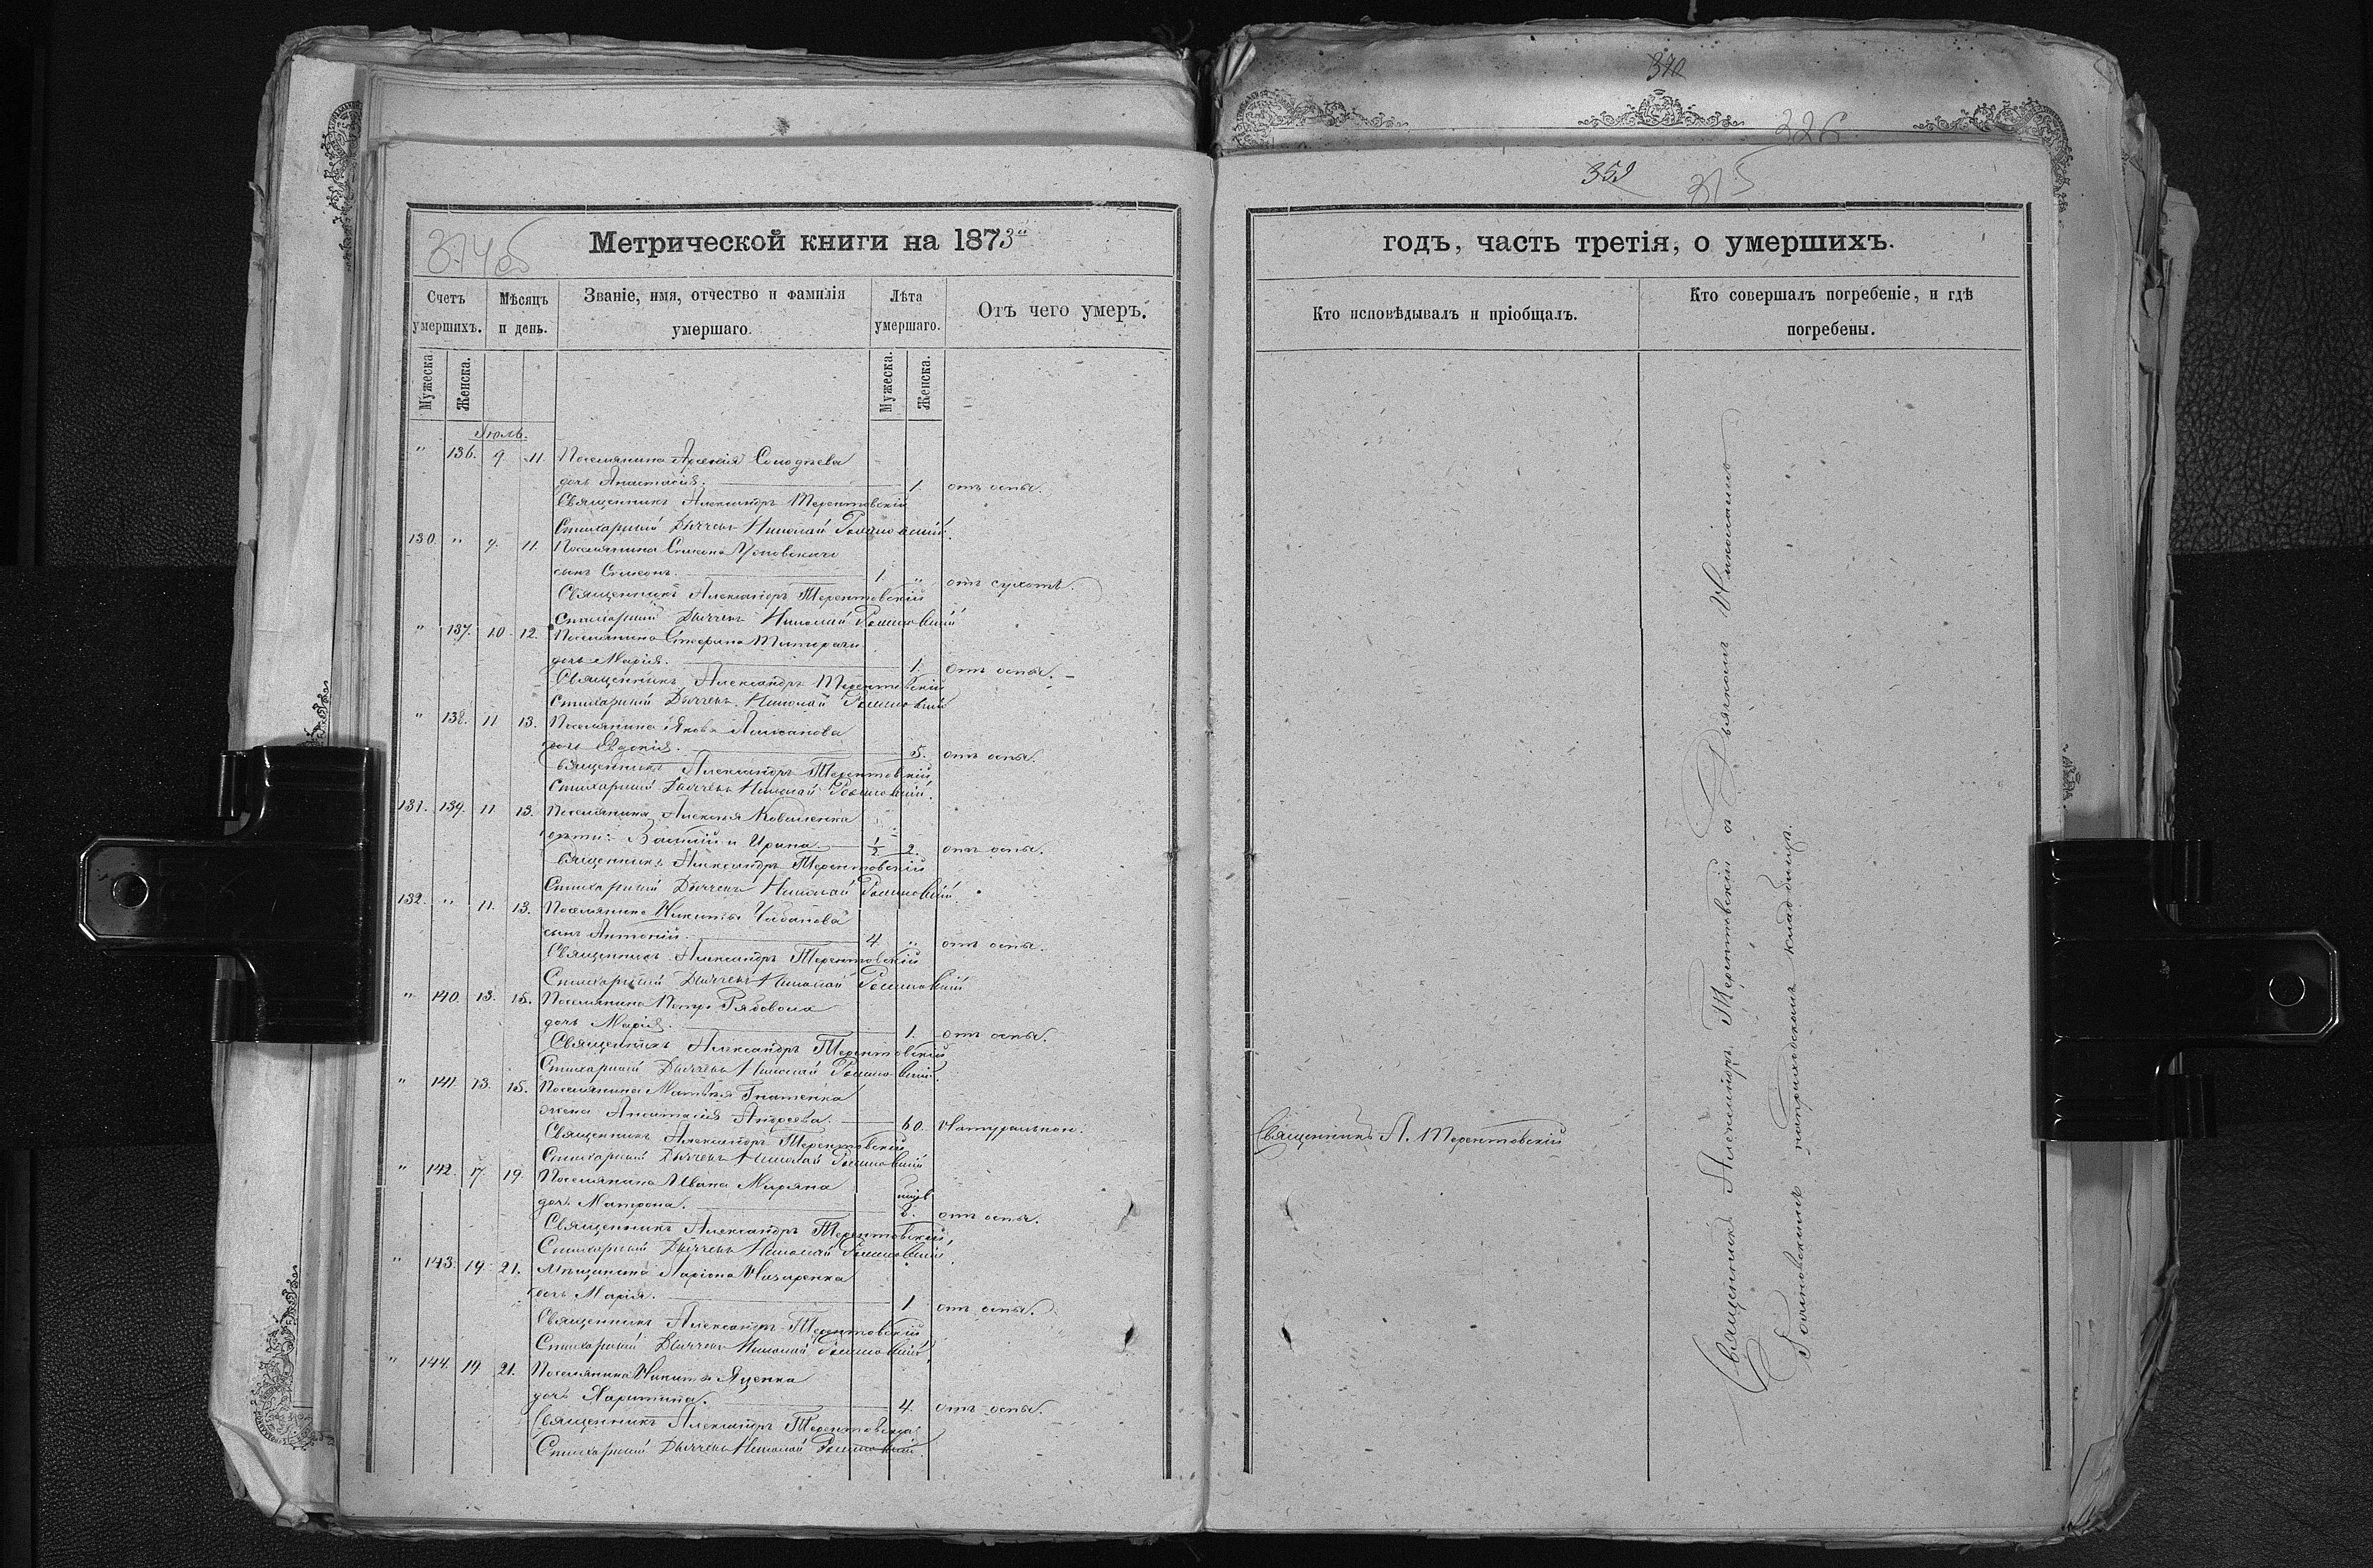 340
326
352
315
374об
Метрической книги на 1873й
годъ, часть третія, о умершихъ.
Счетъ умершихъ.
Мѣсяцъ и день.
Званіе, имя, отчество и фамилія умершаго.
Лѣта умершаго.
Отъ чего умеръ.
Кто исповѣдывалъ и пріобщалъ.
Кто совершалъ погребеніе, и гдѣ погребены.
Мужеска.
Женска.
Мужеска.
Женска.
Іюль.
" 136. 9 11. Поселянина Арсенія
дочь Анастасія. 1. отъ оспы.
Священникъ Александръ Терентовскій
Стихарный Дьячекъ Николай
130. " 9. 11. Поселянина Симеона
сынъ Симеонъ. 1. " отъ сухотъ.
Священникъ Александръ Терентовскій
Стихарный Дьячекъ Николай
" 137. 10 12. Поселянина Стефана
дочь Марія. 1. отъ оспы.
Священникъ Александръ Терентовскій
Стихарный Дьячекъ Николай
" 138. 11 13. Поселянина Якова
дочь Евдокія. 5. отъ оспы.
Священникъ Александръ Терентовскій
Стихарный Дьячекъ Николай
131. 139. 11 13. Поселянина Алексѣя Коваленка
дѣти: Василій и Ирина. 1/2 2. отъ оспы.
Священникъ Александръ Терентовскій
Стихарный Дьячекъ Николай
132. " 11. 13. Поселянина Никиты Чабанова
сынъ Антоній. 4 " отъ оспы.
Священникъ Александръ Терентовскій
Стихарный Дьячекъ Николай
" 140. 13. 15. Поселянина Петра Рябовола
дочь Марія. 1. отъ оспы.
Священникъ Александръ Терентовскій
Стихарный Дьячекъ Николай
" 141. 13. 15. Поселянина Матвѣя Гнатенка
жена Анастасія Андреева. 60. Натуральною.
Священникъ А. Терентовскій
Священникъ Александръ Терентовскій
Стихарный Дьячекъ Николай
" 142. 17. 19. Поселянина Ивана
дочь Матрона. 6. отъ оспы.
Священникъ Александръ Терентовскій
Стихарный Дьячекъ Николай
" 143. 19. 21. Мѣщанина Ларіона Назаренка
дочь Марія. 1 отъ оспы.
Священникъ Александръ Терентовскій
Стихарный Дьячекъ Николай
" 144. 19 21. Поселянина Никиты Яценка
дочь Харитина. 4. отъ оспы.
Священникъ Александръ Терентовскій
Стихарный Дьячекъ Николай
Священникъ Александръ Терентовскій съ Дьячкомъ Николаемъ
на приходскомъ кладбищѣ.